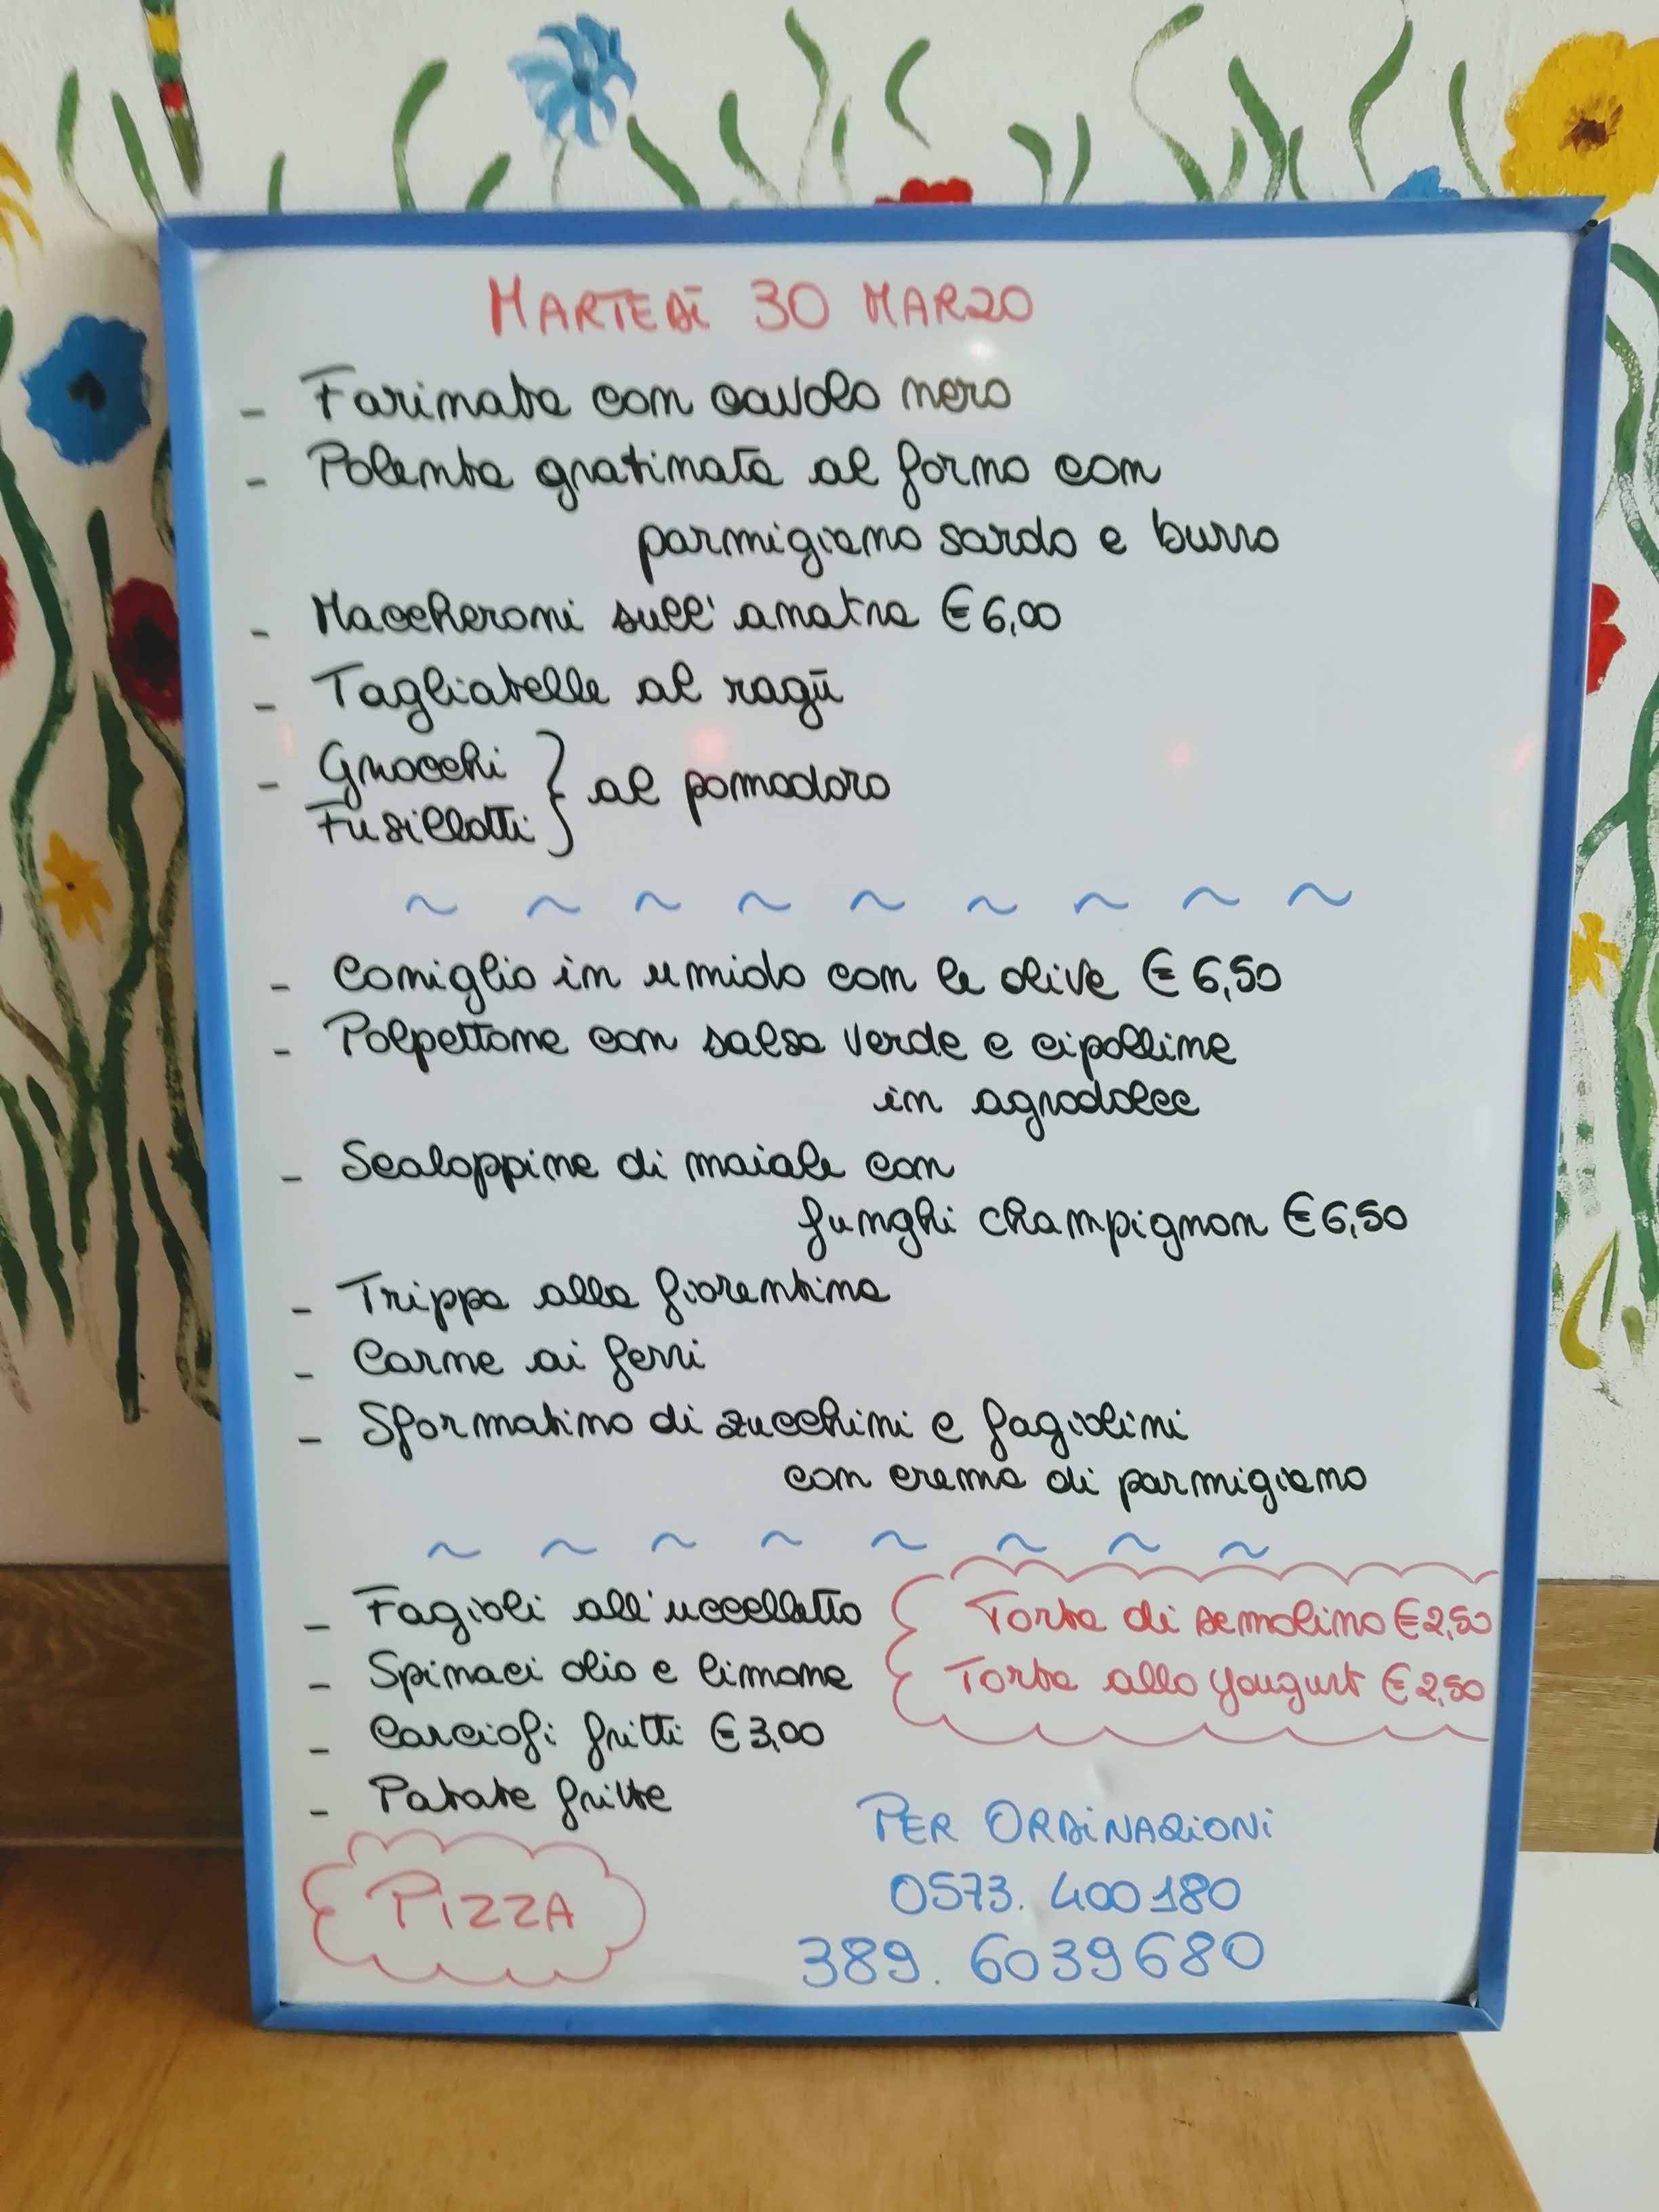 MARTEDÌ 30 MARZO
- Farinata con cavolo nero
- Polenta gratinata al forno con
parmigiano sardo e burro
- Maccheroni sull'anatra €6,00
- Tagliatelle al ragù
- Gnocchi
Fusillotti } al pomodoro
~ ~ ~ ~ ~ ~ ~ ~ ~
- Coniglio in umido con le olive €6,50
- Polpettone con salsa verde e cipolline
in agrodolce
- Scaloppine di maiale con
funghi champignon €6,50
- Trippa alla fiorentina
- Carne ai ferri
- Sformatino di zucchini e fagiolini
con crema di parmigiano
~ ~ ~ ~ ~ ~ ~ ~
- Fagioli all'uccelletto
- Spinaci olio e limone
- Carciofi fritti €3,00
- Patate fritte
Torta di semolino €2,50
Torta allo yougurt €2,50
PIZZA
PER ORDINAZIONI
0573. 400180
389. 6039680